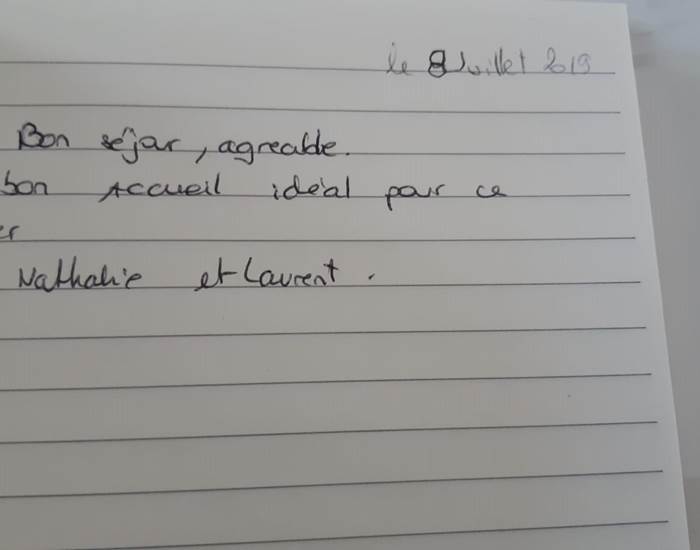 le 8 Juillet 2019
Bon séjar, agreable.
bon Accueil idéal pour ce
er
Nathalie et Laurent.